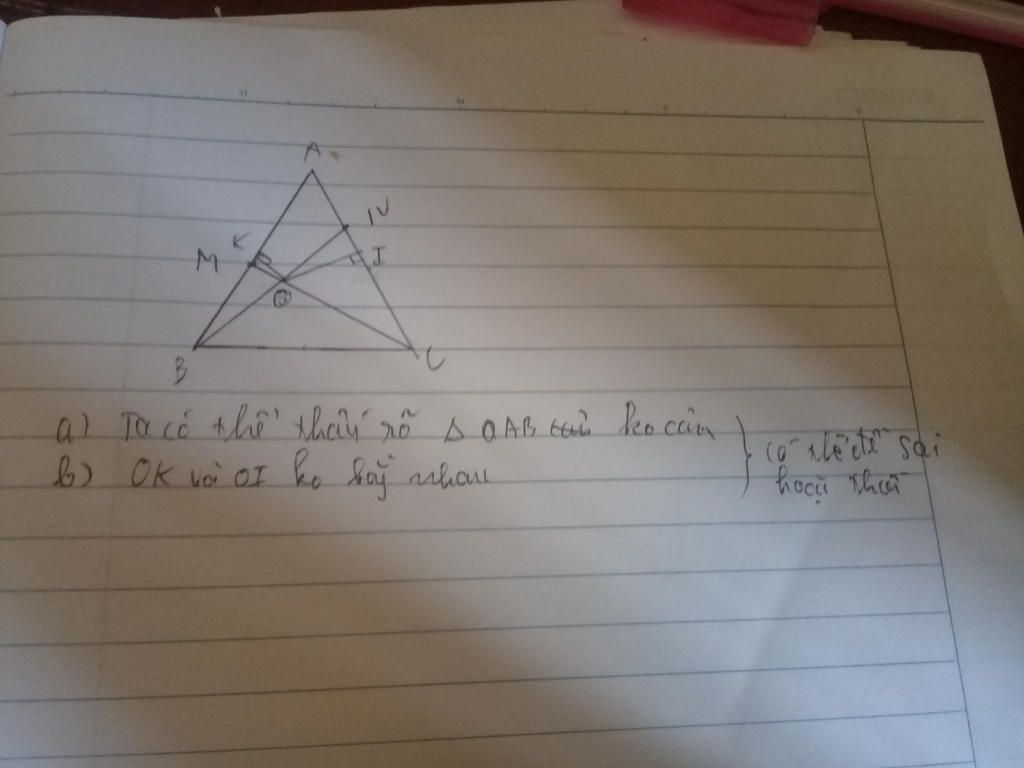 A
N
K
M
I
O
B
C
a) Ta có thể thấy rõ Δ OAB ko cân
b) OK và OI ko bằg nhau
có thể đề sai
hoặc thiế